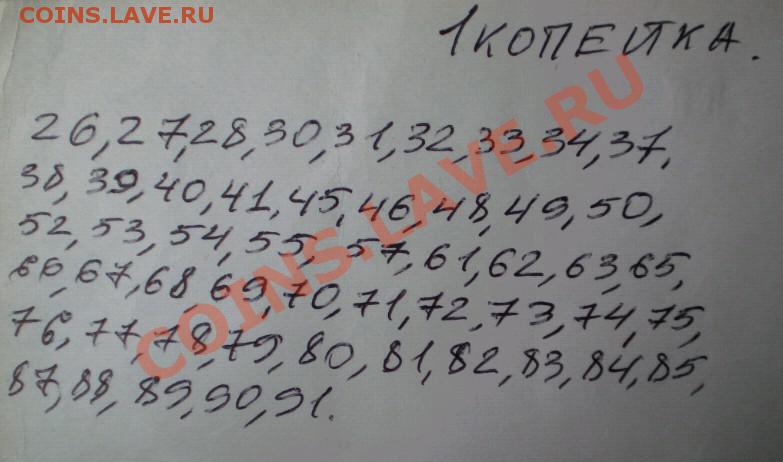 COINS.LAVE.RU
1 КОПЕЙКА.
26, 27, 28, 30, 31, 32, 33, 34, 37,
38, 39, 40, 41, 45, 46, 48, 49, 50,
52, 53, 54, 55, 57, 61, 62, 63, 65,
66, 67, 68, 69, 70, 71, 72, 73, 74, 75,
76, 77, 78, 79, 80, 81, 82, 83, 84, 85,
87, 88, 89, 90, 91.
COINS.LAVE.RU
COINS.LAVE.RU